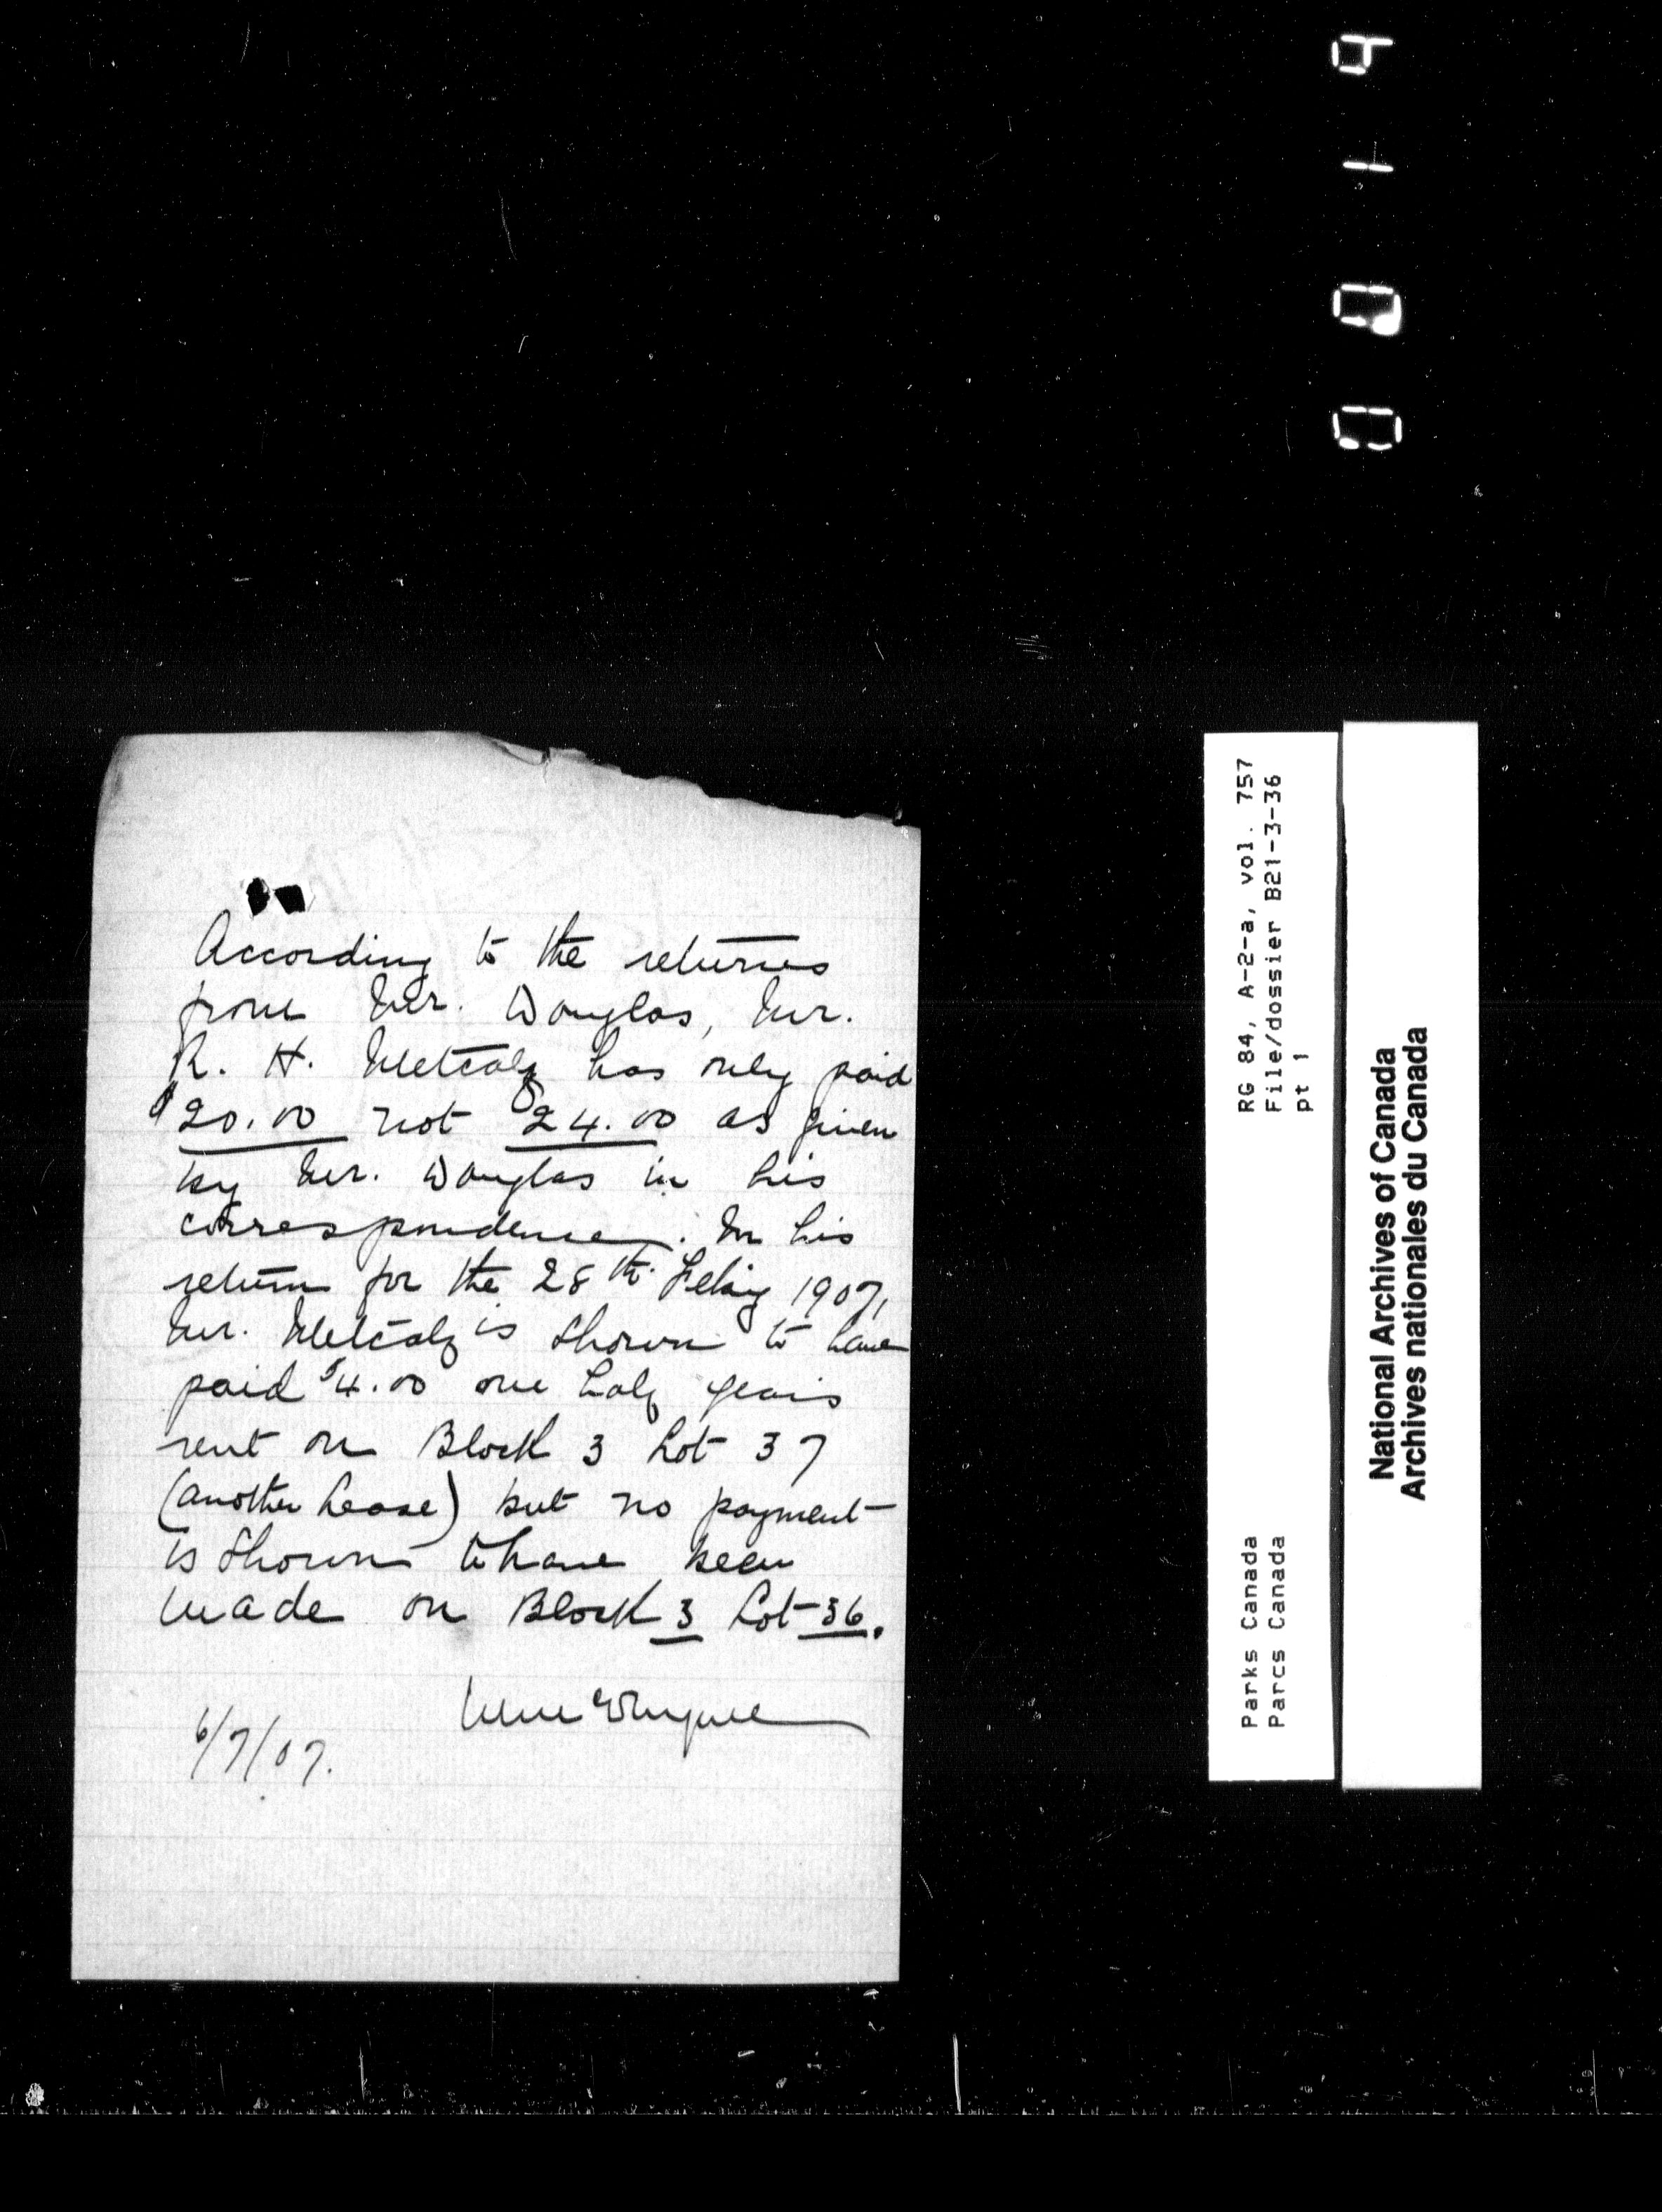 According to the returns
from Mr. Douglas, Mr.
R. H. Metcalf has only paid
$20.00 not 24.00 as given
by Mr. Douglas in his
correspondence. In his
return for the 28th. Feby 1907,
Mr. Metcalf is shown to have
paid $4.00 one half years
rent on Block 3 Lot 37
(another lease) but no payment
is shown to have been
made on Block 3 Lot 36.
6/7/07.
RG 84, A-2-a, vol. 757
File/dossier B21-3-36
pt 1
Parks Canada
Parcs Canada
National Archives of Canada
Archives nationales du Canada